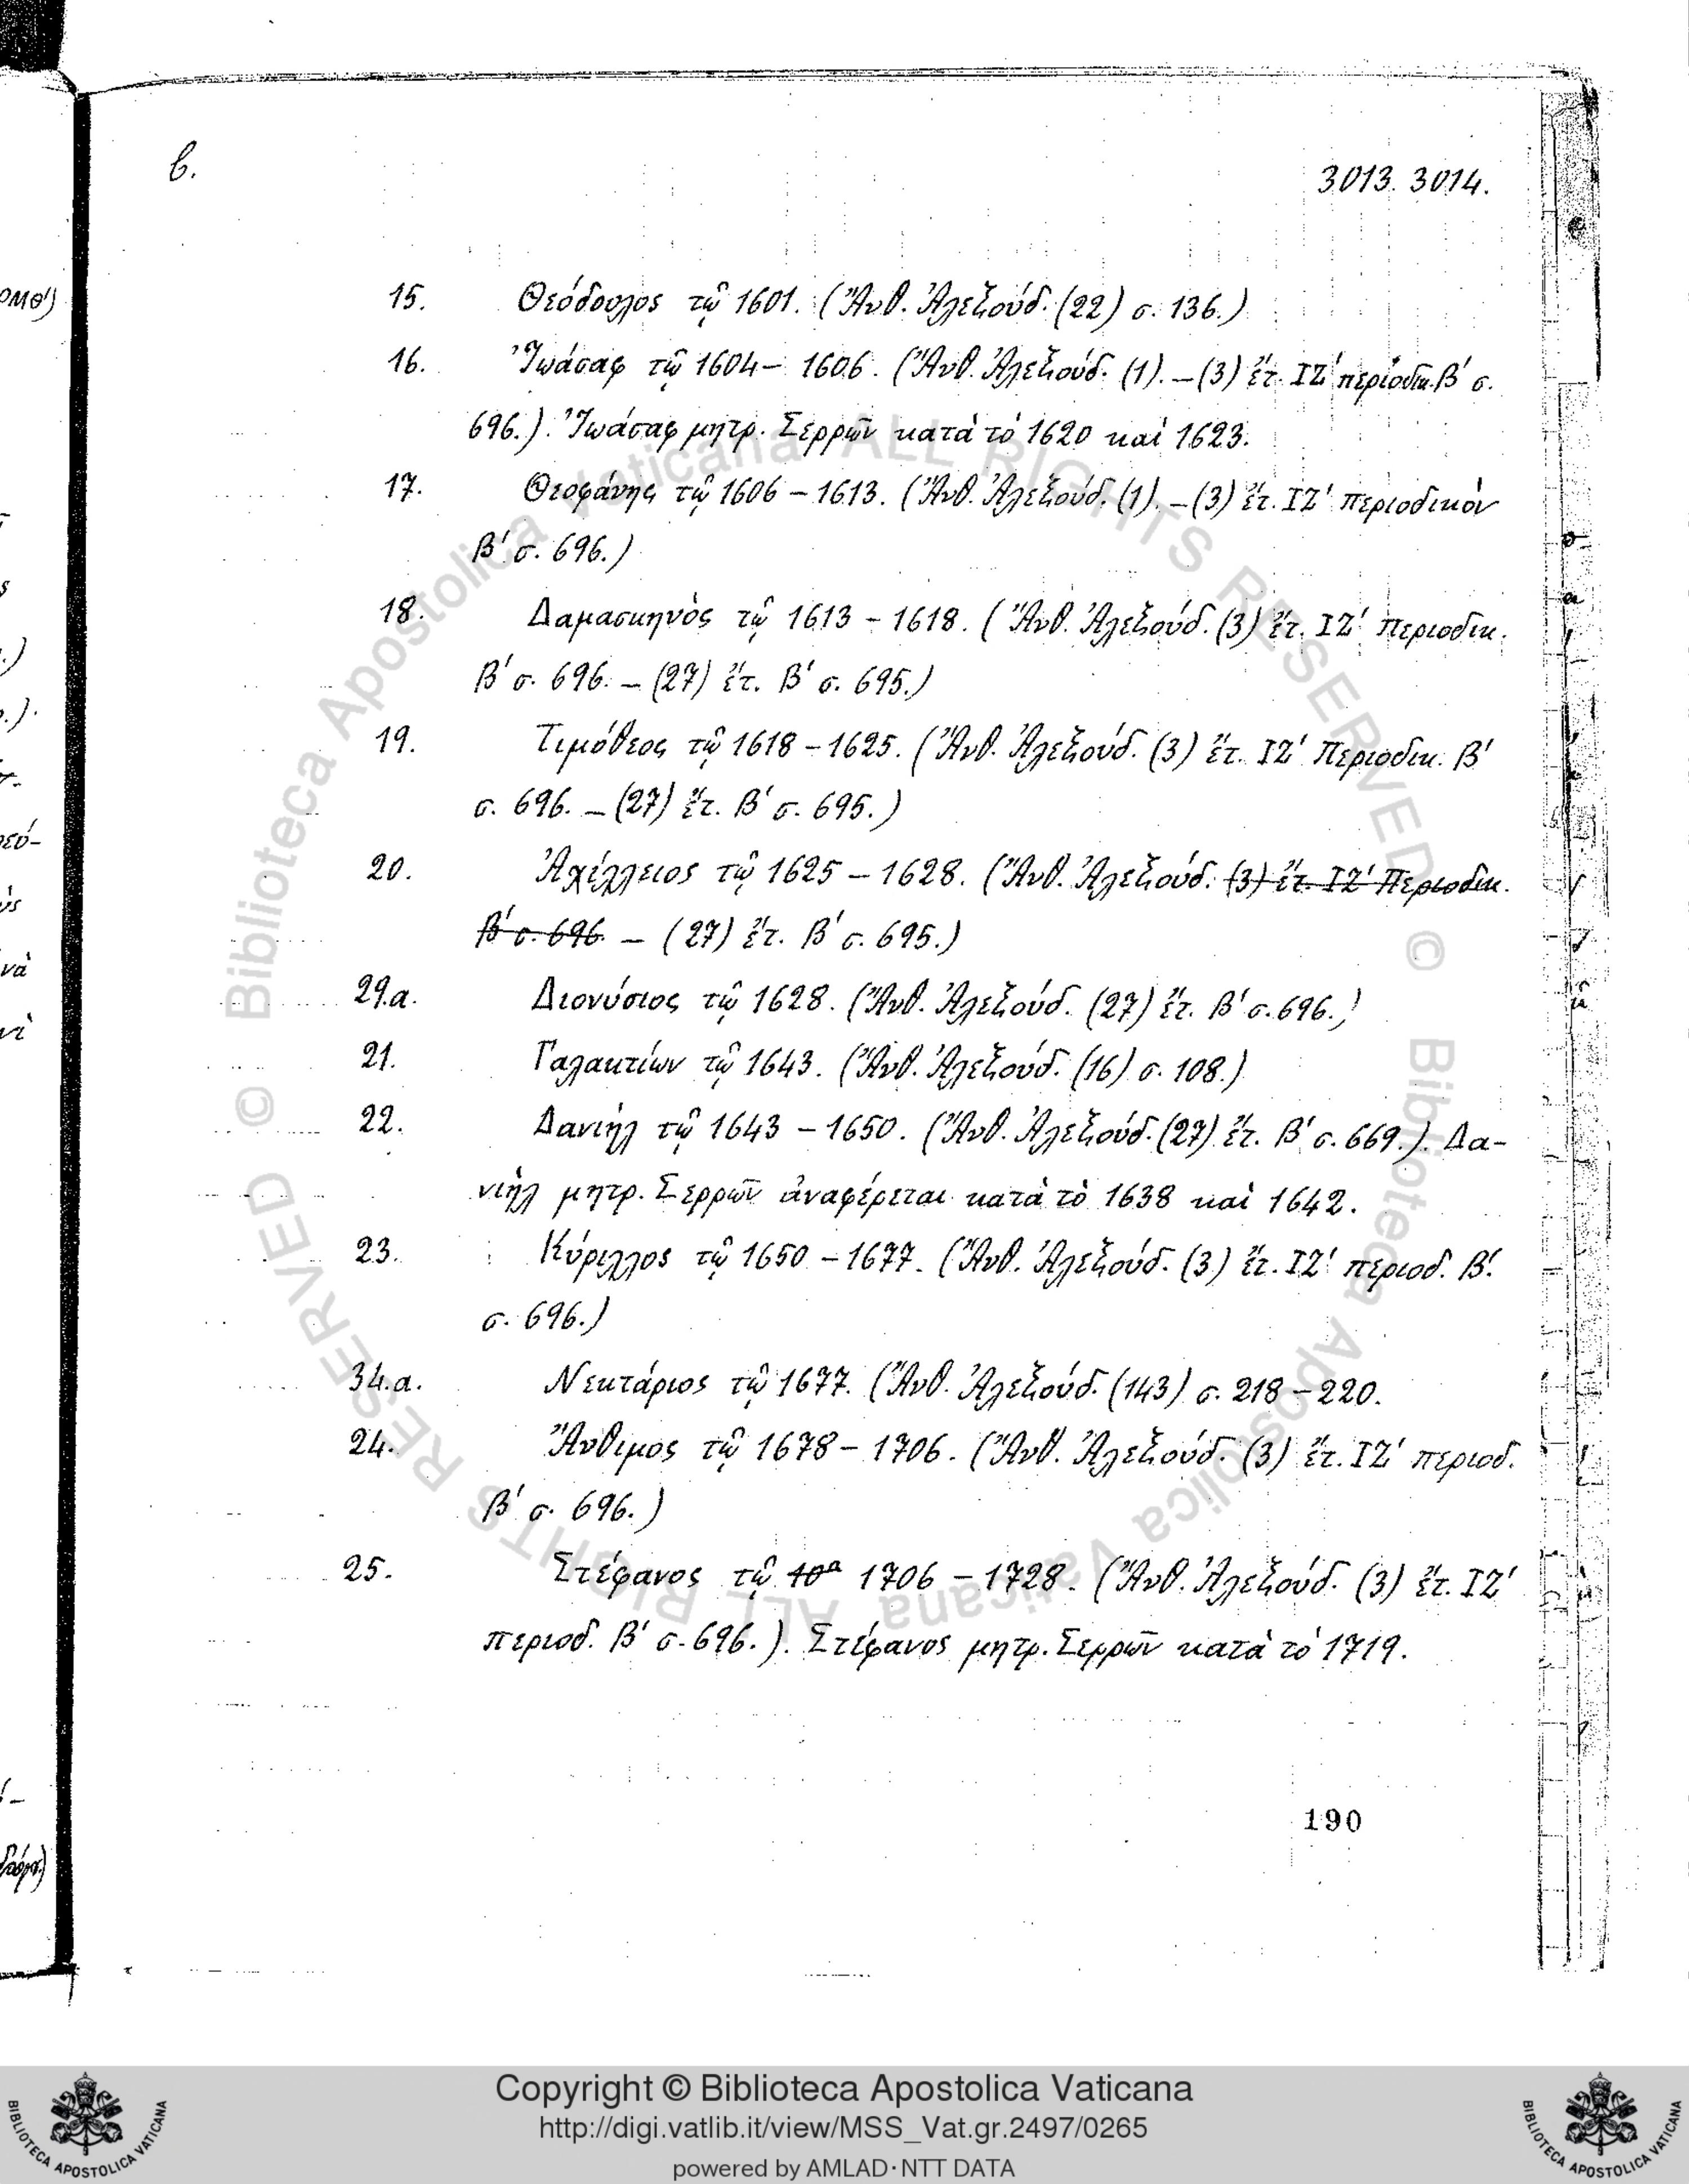 β. 3013. 3014.
15. Θεόδουλος τῷ 1601. (Ἄνθ. Ἀλεξούδ. (22) σ. 136.)
16. Ἰωάσαφ τῷ 1604 – 1606. (Ἄνθ. Ἀλεξούδ. (1). – (3) ἔτ. ΙΖ' περιοδικ. Β' σ.
696.). Ἰωάσαφ μητρ. Σερρῶν κατὰ τὸ 1620 καὶ 1623.
17. Θεοφάνης τῷ 1606 – 1613. (Ἄνθ. Ἀλεξούδ. (1). – (3) ἔτ. ΙΖ' περιοδικὸν
Β' σ. 696.)
18. Δαμασκηνὸς τῷ 1613 – 1618. (Ἄνθ. Ἀλεξούδ. (3) ἔτ. ΙΖ' περιοδικ.
Β' σ. 696. – (27) ἔτ. Β' σ. 695.)
19. Τιμόθεος τῷ 1618 – 1625. (Ἄνθ. Ἀλεξούδ. (3) ἔτ. ΙΖ' Περιοδικ. Β'
σ. 696. – (27) ἔτ. Β' σ. 695.)
20. Ἀχίλλειος τῷ 1625 – 1628. (Ἄνθ. Ἀλεξούδ. (3) ἔτ. ΙΖ' Περιοδικ.
Β' σ. 696. – (27) ἔτ. Β' σ. 695.)
29.α. Διονύσιος τῷ 1628. (Ἄνθ. Ἀλεξούδ. (27) ἔτ. Β' σ. 696.)
21. Γαλακτίων τῷ 1643. (Ἄνθ. Ἀλεξούδ. (16) σ. 108.)
22. Δανιὴλ τῷ 1643 – 1650. (Ἄνθ. Ἀλεξούδ. (27) ἔτ. Β' σ. 669.). Δα-
νιὴλ μητρ. Σερρῶν ἀναφέρεται κατὰ τὸ 1638 καὶ 1642.
23. Κύριλλος τῷ 1650 – 1677. (Ἄνθ. Ἀλεξούδ. (3) ἔτ. ΙΖ' περιοδ. Β'.
σ. 696.)
34.α. Νεκτάριος τῷ 1677. (Ἄνθ. Ἀλεξούδ. (143) σ. 218 – 220.
24. Ἄνθιμος τῷ 1678 – 1706. (Ἄνθ. Ἀλεξούδ. (3) ἔτ. ΙΖ' περιοδ.
Β' σ. 696.)
25. Στέφανος τῷ 10α 1706 – 1728. (Ἄνθ. Ἀλεξούδ. (3) ἔτ. ΙΖ'
περιοδ. Β' σ. 696.). Στέφανος μητρ. Σερρῶν κατὰ τὸ 1719.
190
© Biblioteca Apostolica Vaticana ALL RIGHTS RESERVED © Biblioteca Apostolica Vaticana ALL RIGHTS RESERVED
Copyright © Biblioteca Apostolica Vaticana
http://digi.vatlib.it/view/MSS_Vat.gr.2497/0265
powered by AMLAD · NTT DATA
BIBLIOTECA APOSTOLICA VATICANA
BIBLIOTECA APOSTOLICA VATICANA